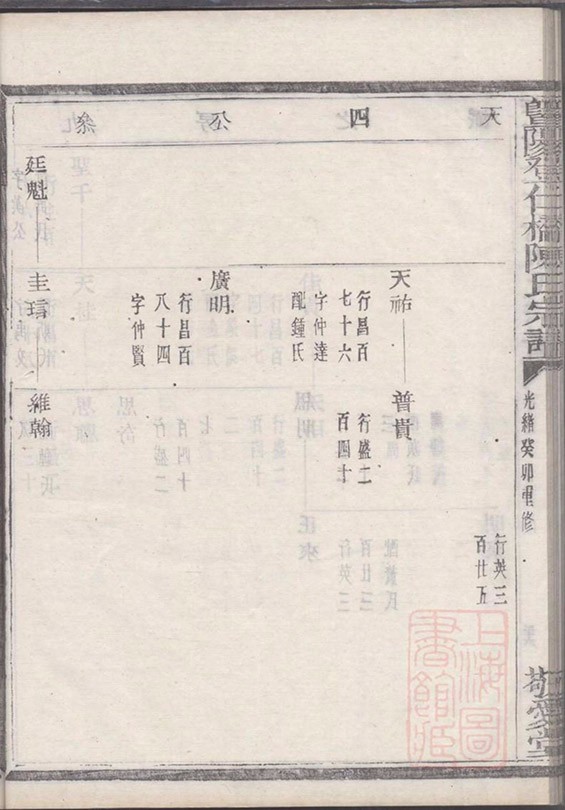 陳氏宗譜
光緒癸卯重修
敬愛堂
天四公
行英三
百廿五
天祐
普貴
行昌百
七十六
字仲達
配鍾氏
行盛二
百四十
廣明
行昌百
八十四
字仲賢
廷魁
圭
維翰
上海圖
書館藏